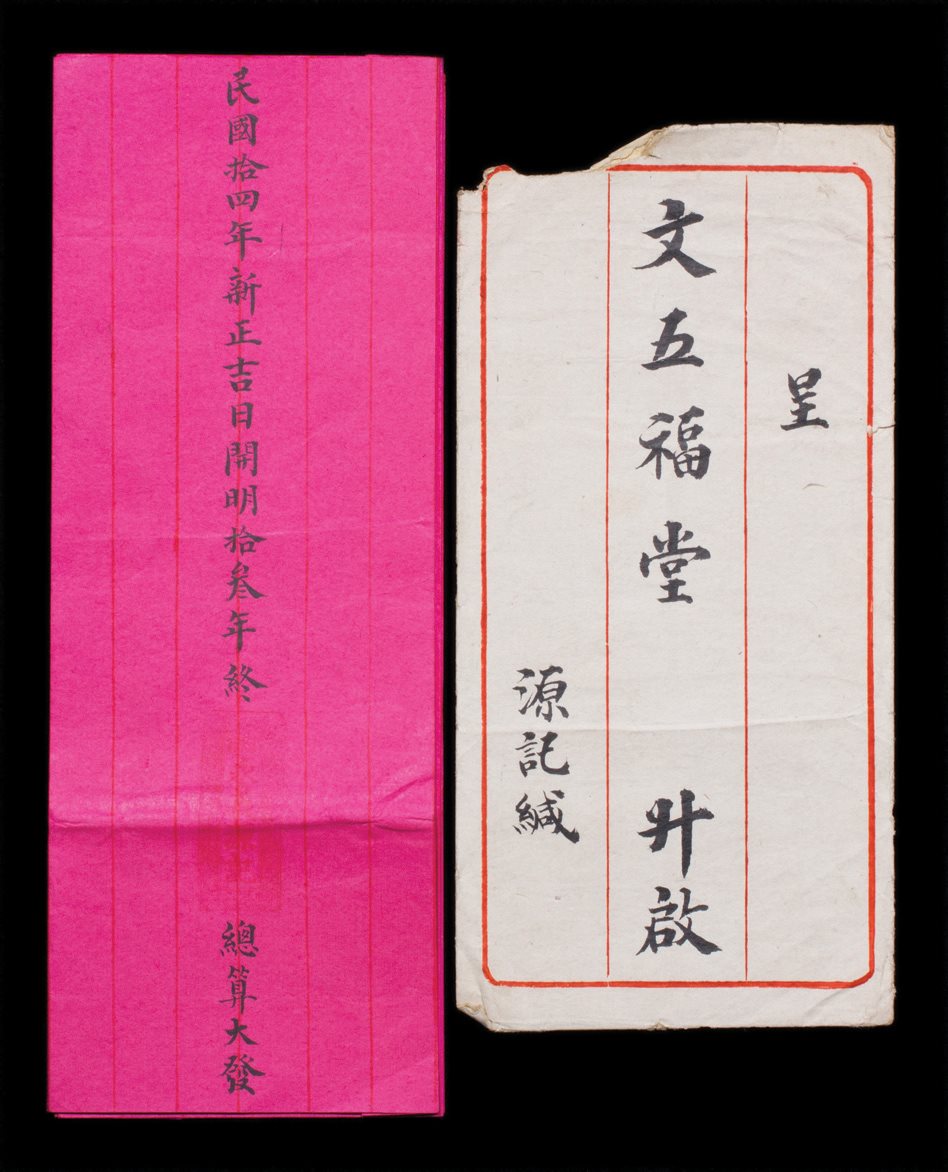 民國拾四年新正吉日開明拾叁年終
總算大發
呈
文五福堂 升啟
源記緘